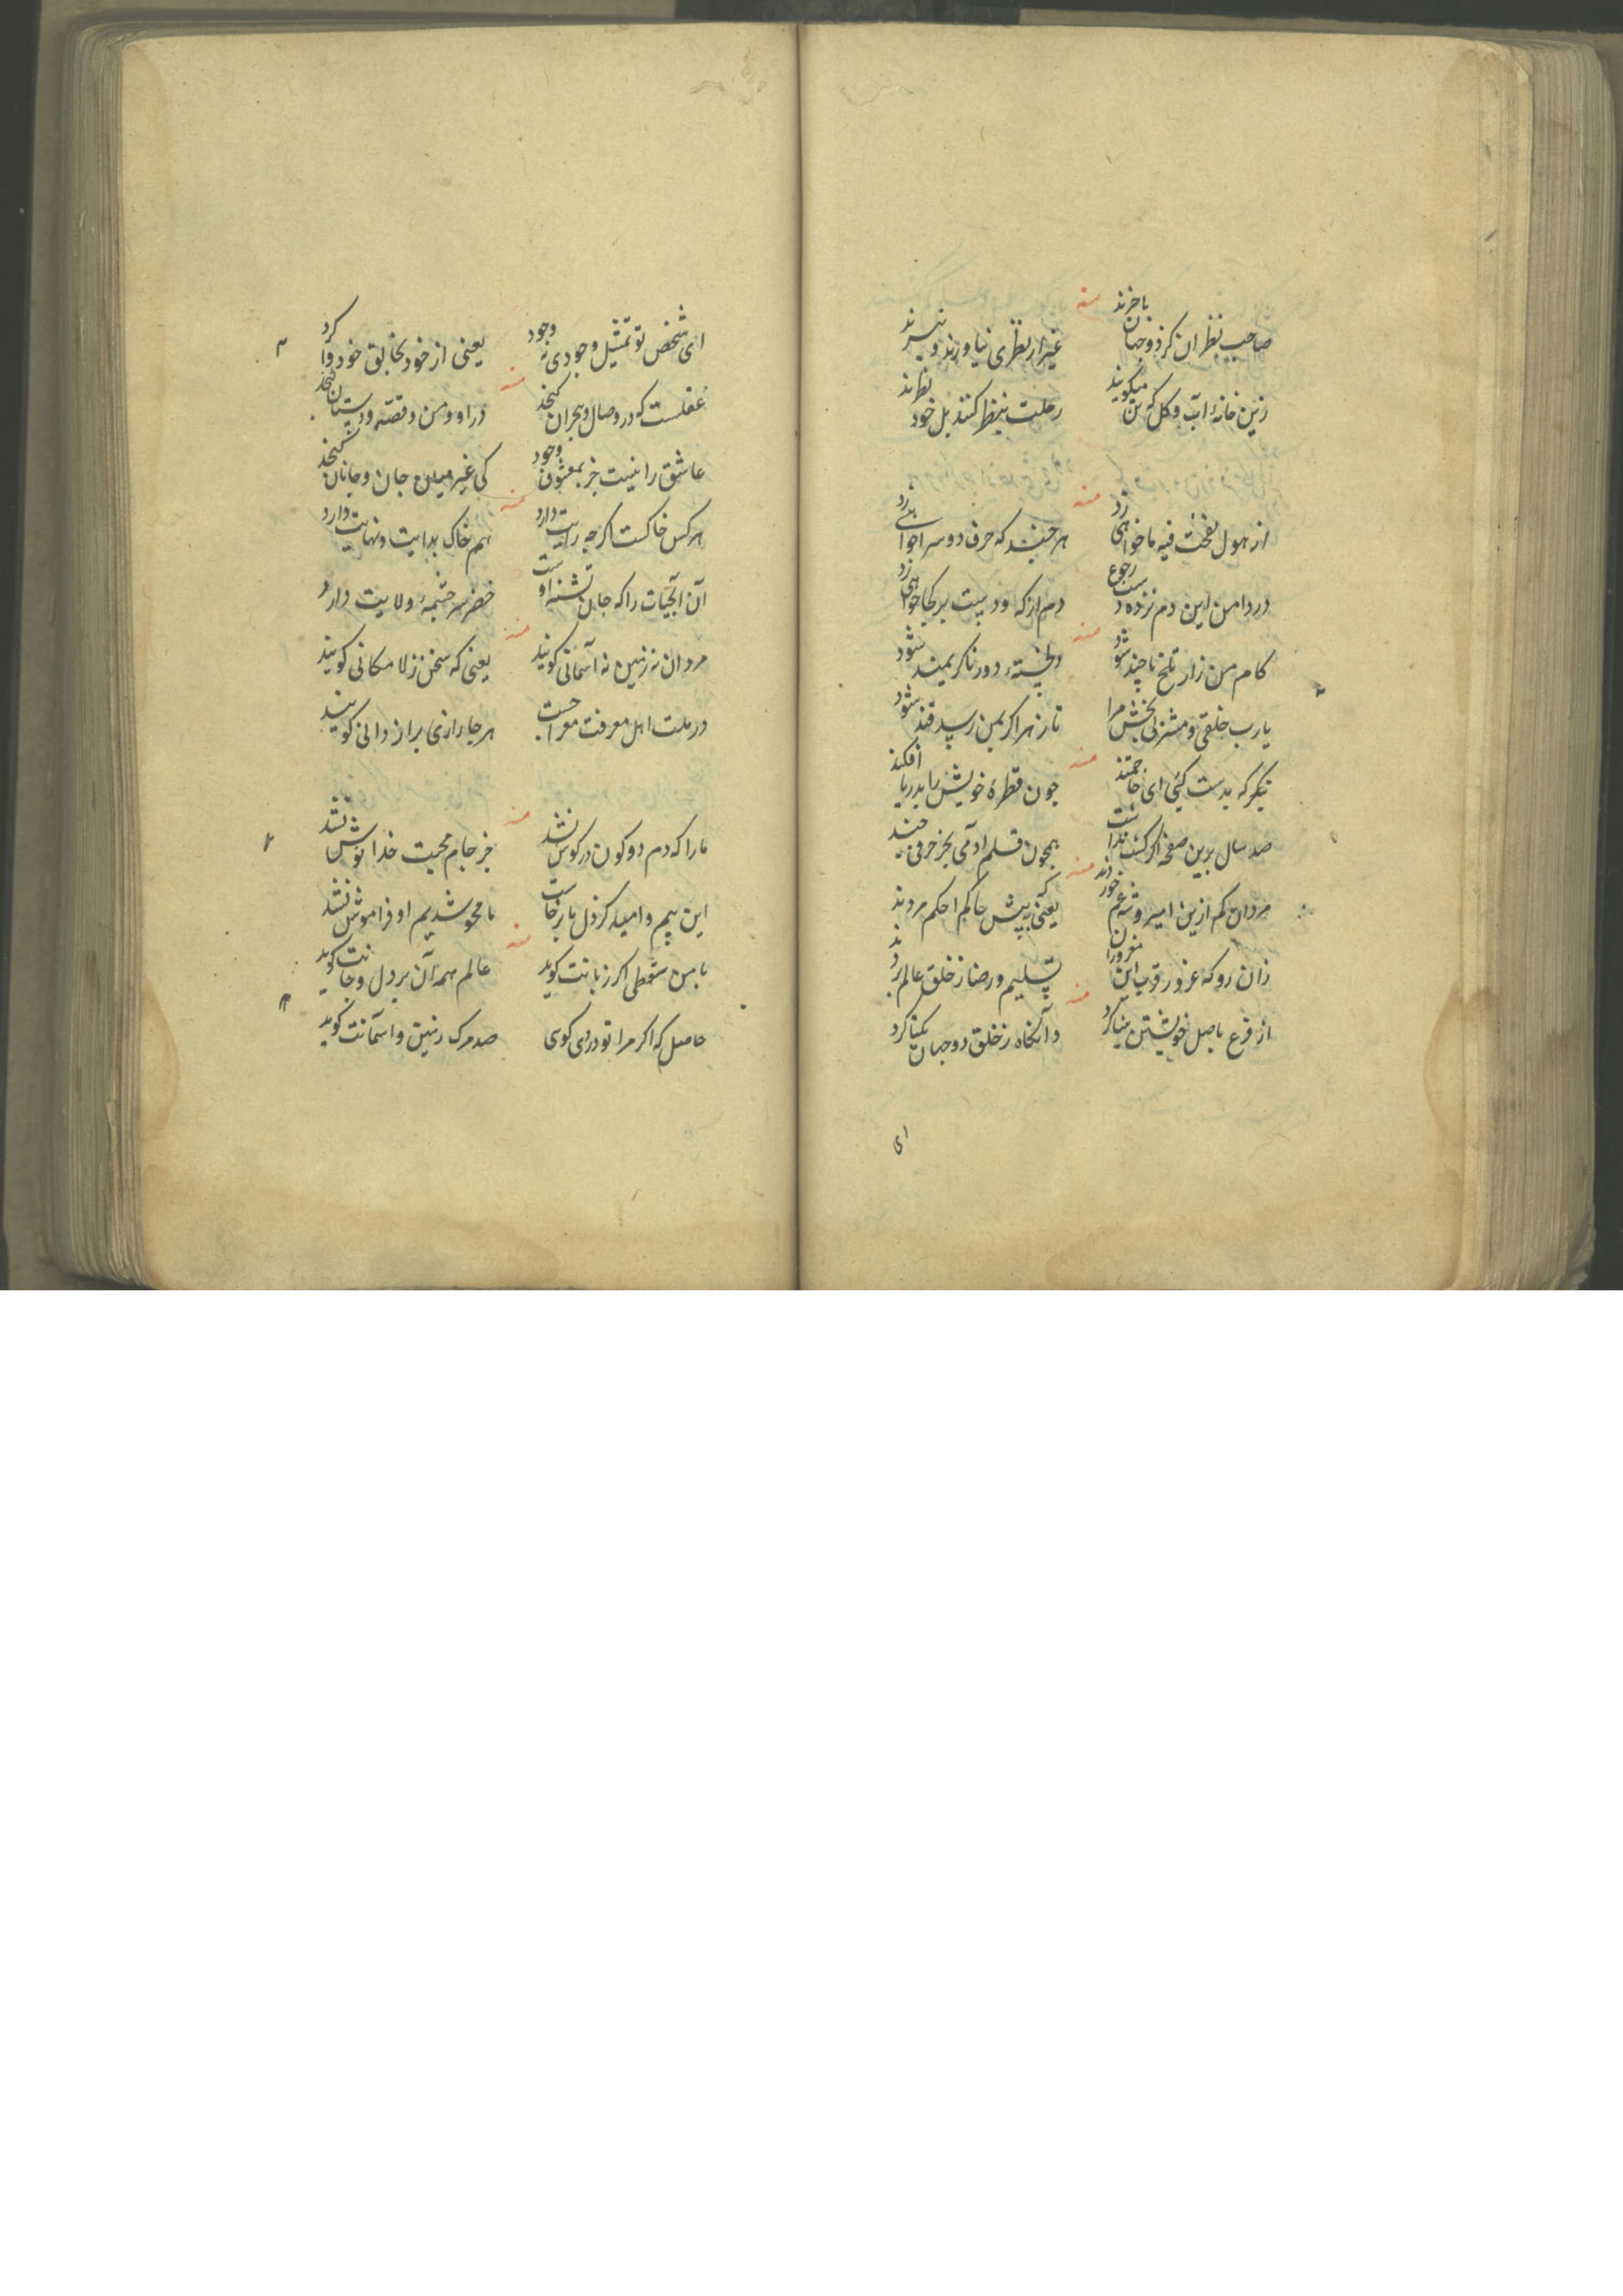 منه
صاحب نظران کز دو جهان باخبرند غیر از نظری نیاورند و نبرند
زین خانهٔ آب و گل که تن میکویند رحلت بنظر کنند بل خود نظرند
منه
از هول نفخت فیه ما خواهی زد هر چند که حرف دوسرا خواهی
در دامن این دم نزده دست رجوع دم از که و دست بر کجا خواهی زد
منه
کام من زار تلخ تا چند شود
یارب خلقی و مشربی بخش مرا تا زهر اگر بمن رسد قند شود
منه
بنگر که بدست کیٔی ای حاجتمند چون قطرهٔ خویش را بدریا افکند
صد سال برین صفحه اگر گشت ندانست همچون قلم ادمی بجز حرفی چند
منه
مردان کم ازین امیر و شه غم خورند یعنی که بپیش حاکم احکم مروند
زان رو که غرور قرب این مغروران تسلیم و رضا ز خلق عالم بردند
منه
از فرع باصل خویشتن بینا کرد وآنکاه ز خلق دو جهان یکتا کرد
ای
ای شخص تو تمثیل وجودی نه وجود یعنی از خود بخالق خود وا کرد
منه
عقلست که در وصال و هجران کنجد در او و من و قصه و دستان کنجد
عاشق را نیست جز بمعشوق وجود کی غیر میان جان و جانان کنجد
منه
هر کس خاکست اکرچه رایت دارد هم خاک بدایت و نهایت دارد
آن آبحیات را که جان تشنه اوست خضر سرچشمهٔ ولایت دارد
منه
مردان نه زمین نه آسمانی کویند یعنی که سخن ز لامکانی کویند
در ملت اهل معرفت معراجست هر جا رازی براز دانی کویند
منه
ما را که دم دو کون در کوش نشد جز جام محبت خدا نوش نشد
این بیم و امید کز دل ما برخاست ما محو شدیم او فراموش نشد
منه
با من سقطی اکر زبانت کوید عالم همه آن بر دل و جانت کوید
حاصل که اکر مرا تو دردی کوی صد مرک زمین و اسمانت کوید